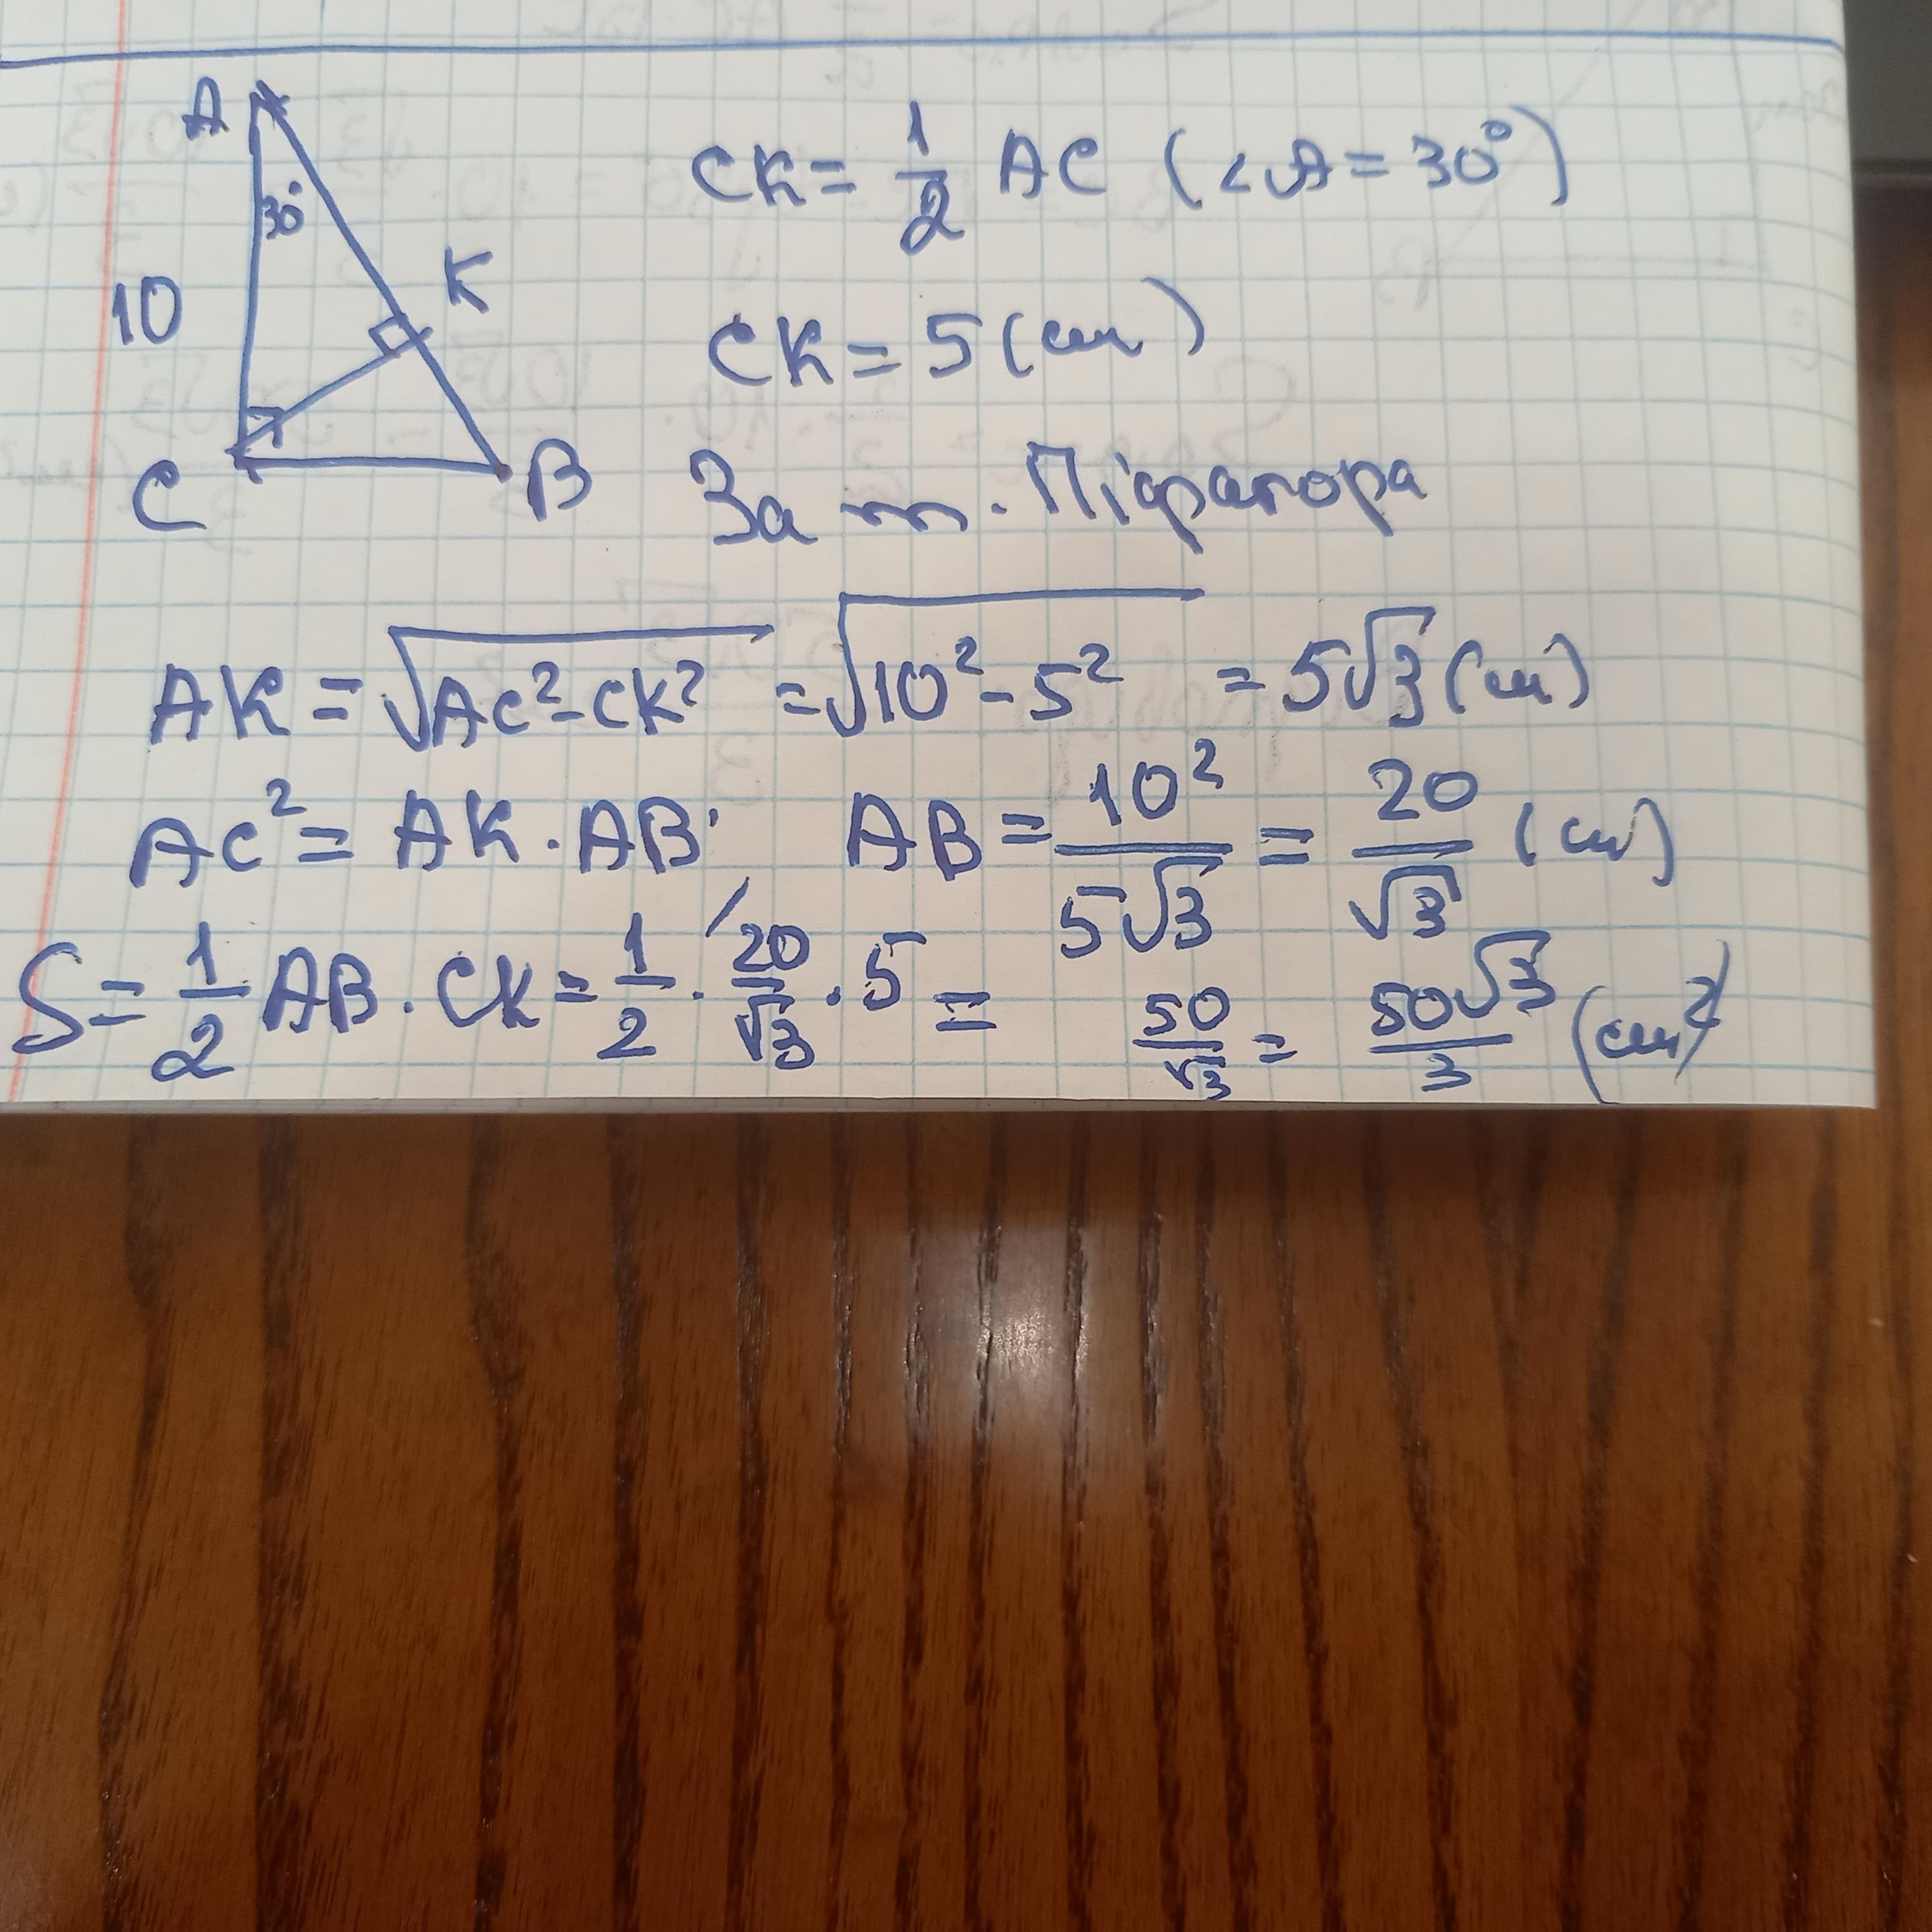 A
30°
10
K
C
B
CK = 1/2 AC (∠A = 30°)
CK = 5 (см)
За т. Піфагора
AK = √(AC² - CK²) = √(10² - 5²) = 5√3 (см)
AC² = AK · AB; AB = 10²/(5√3) = 20/√3 (см)
S = 1/2 AB · CK = 1/2 · 20/√3 · 5 = 50/√3 = 50√3/3 (см²)